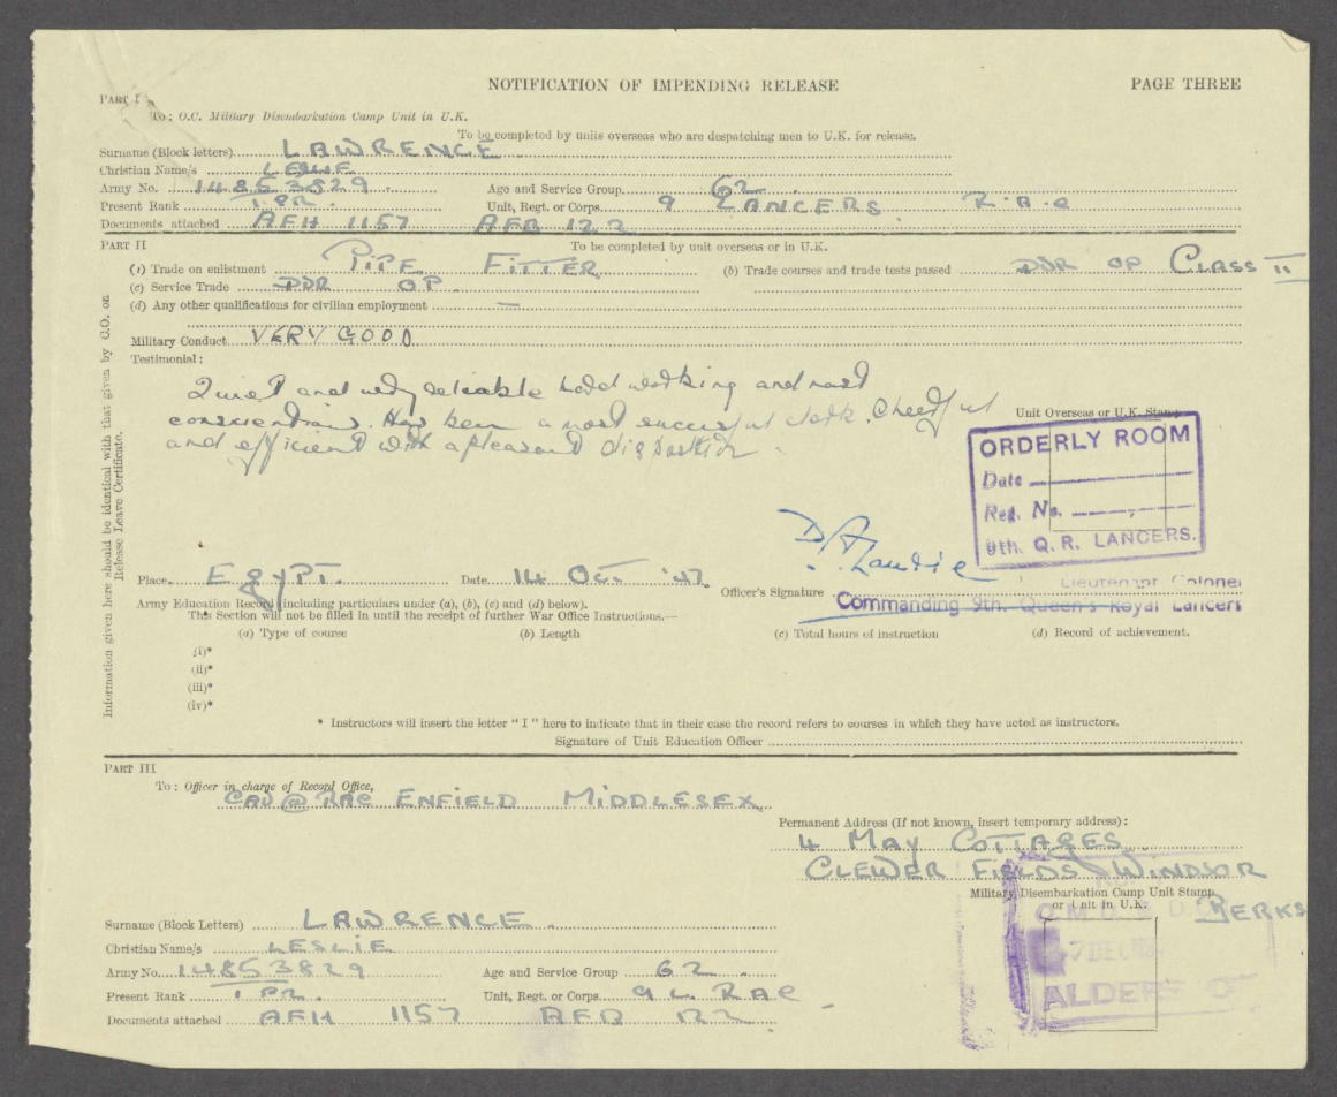 NOTIFICATION OF IMPENDING RELEASE PAGE THREE
PART I
To: O.C. Military Disembarkation Camp Unit in U.K.
To be completed by units overseas who are despatching men to U.K. for release.
Surname (Block letters) LAWRENCE
Christian Name/s
Army No. 14853829 Age and Service Group 62
Present Rank Unit, Regt. or Corps 9 LANCERS R.A.C
Documents attached AFH 1157 AFB 122
PART II To be completed by unit overseas or in U.K.
(a) Trade on enlistment PIPE FITTER (b) Trade courses and trade tests passed OP CLASS II
(c) Service Trade OP
(d) Any other qualifications for civilian employment —
Military Conduct VERY GOOD
Testimonial:
Quiet and very reliable hard working and most
conscientious. Has been a most successful clerk. Cheerful
and efficient with a pleasant disposition.
Unit Overseas or U.K. Stamp
ORDERLY ROOM
Date
Reg. No.
9th. Q. R. LANCERS.
Place EGYPT. Date 14 OCT '47
Officer's Signature
Lieutenant Colonel
Commanding 9th. Queen's Royal Lancers
Army Education Record (including particulars under (a), (b), (c) and (d) below).
This Section will not be filled in until the receipt of further War Office Instructions.—
(a) Type of course (b) Length (c) Total hours of instruction (d) Record of achievement.
(i)*
(ii)*
(iii)*
(iv)*
* Instructors will insert the letter "I" here to indicate that in their case the record refers to courses in which they have acted as instructors.
Signature of Unit Education Officer
Information given here should be identical with that given by C.O. on
Release Leave Certificate.
PART III
To: Officer in charge of Record Office,
RAC ENFIELD MIDDLESEX
Permanent Address (If not known, insert temporary address):
4 MAY COTTAGES
CLEWER FIELDS WINDSOR
BERKS
Military Disembarkation Camp Unit Stamp
or Unit in U.K.
Surname (Block Letters) LAWRENCE
Christian Name/s LESLIE
Army No. 14853829 Age and Service Group 62
Present Rank Unit, Regt. or Corps 9 L RAC
Documents attached AFH 1157 AFB 122